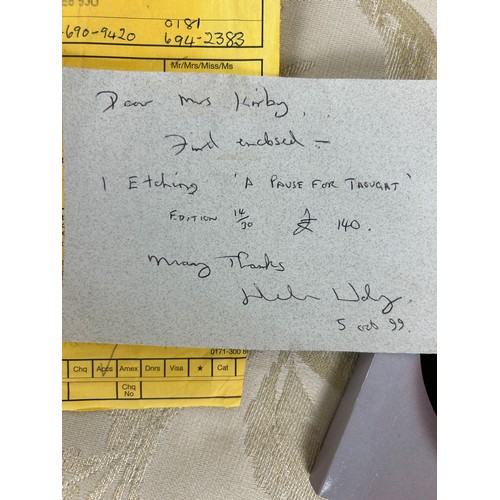 0181
-690-9420 694-2383
Mr/Mrs/Miss/Ms
Dear Mrs Kirby,
Find enclosed -
1 Etching 'A PAUSE FOR THOUGHT'
EDITION 14/30 £ 140.
Many Thanks
5 oct 99.
0171-300 8
Chq Appts Amex Dnrs Visa ★ Cat
Chq
No